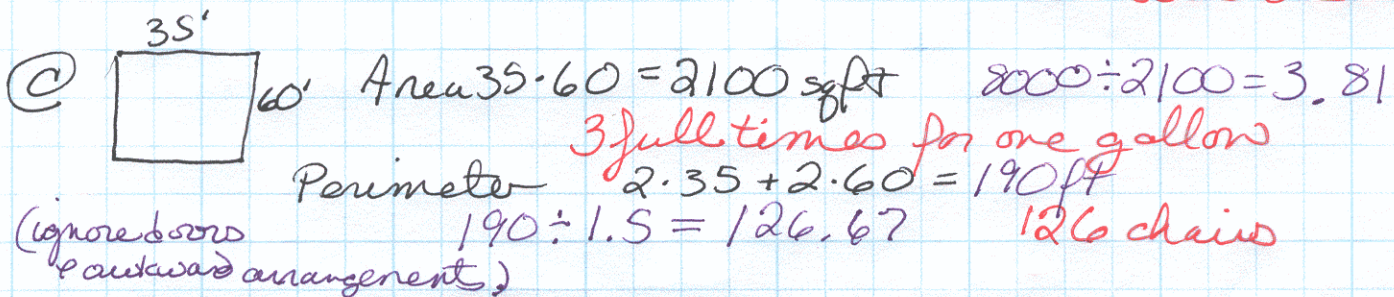 35'
@ 60' Area 35·60 = 2100 sqft 8000÷2100=3.81
3 full times for one gallon
Perimeter 2·35+2·60 = 190ft
(ignore doors 190÷1.5 = 126.67 126 chairs
& awkward arrangements)